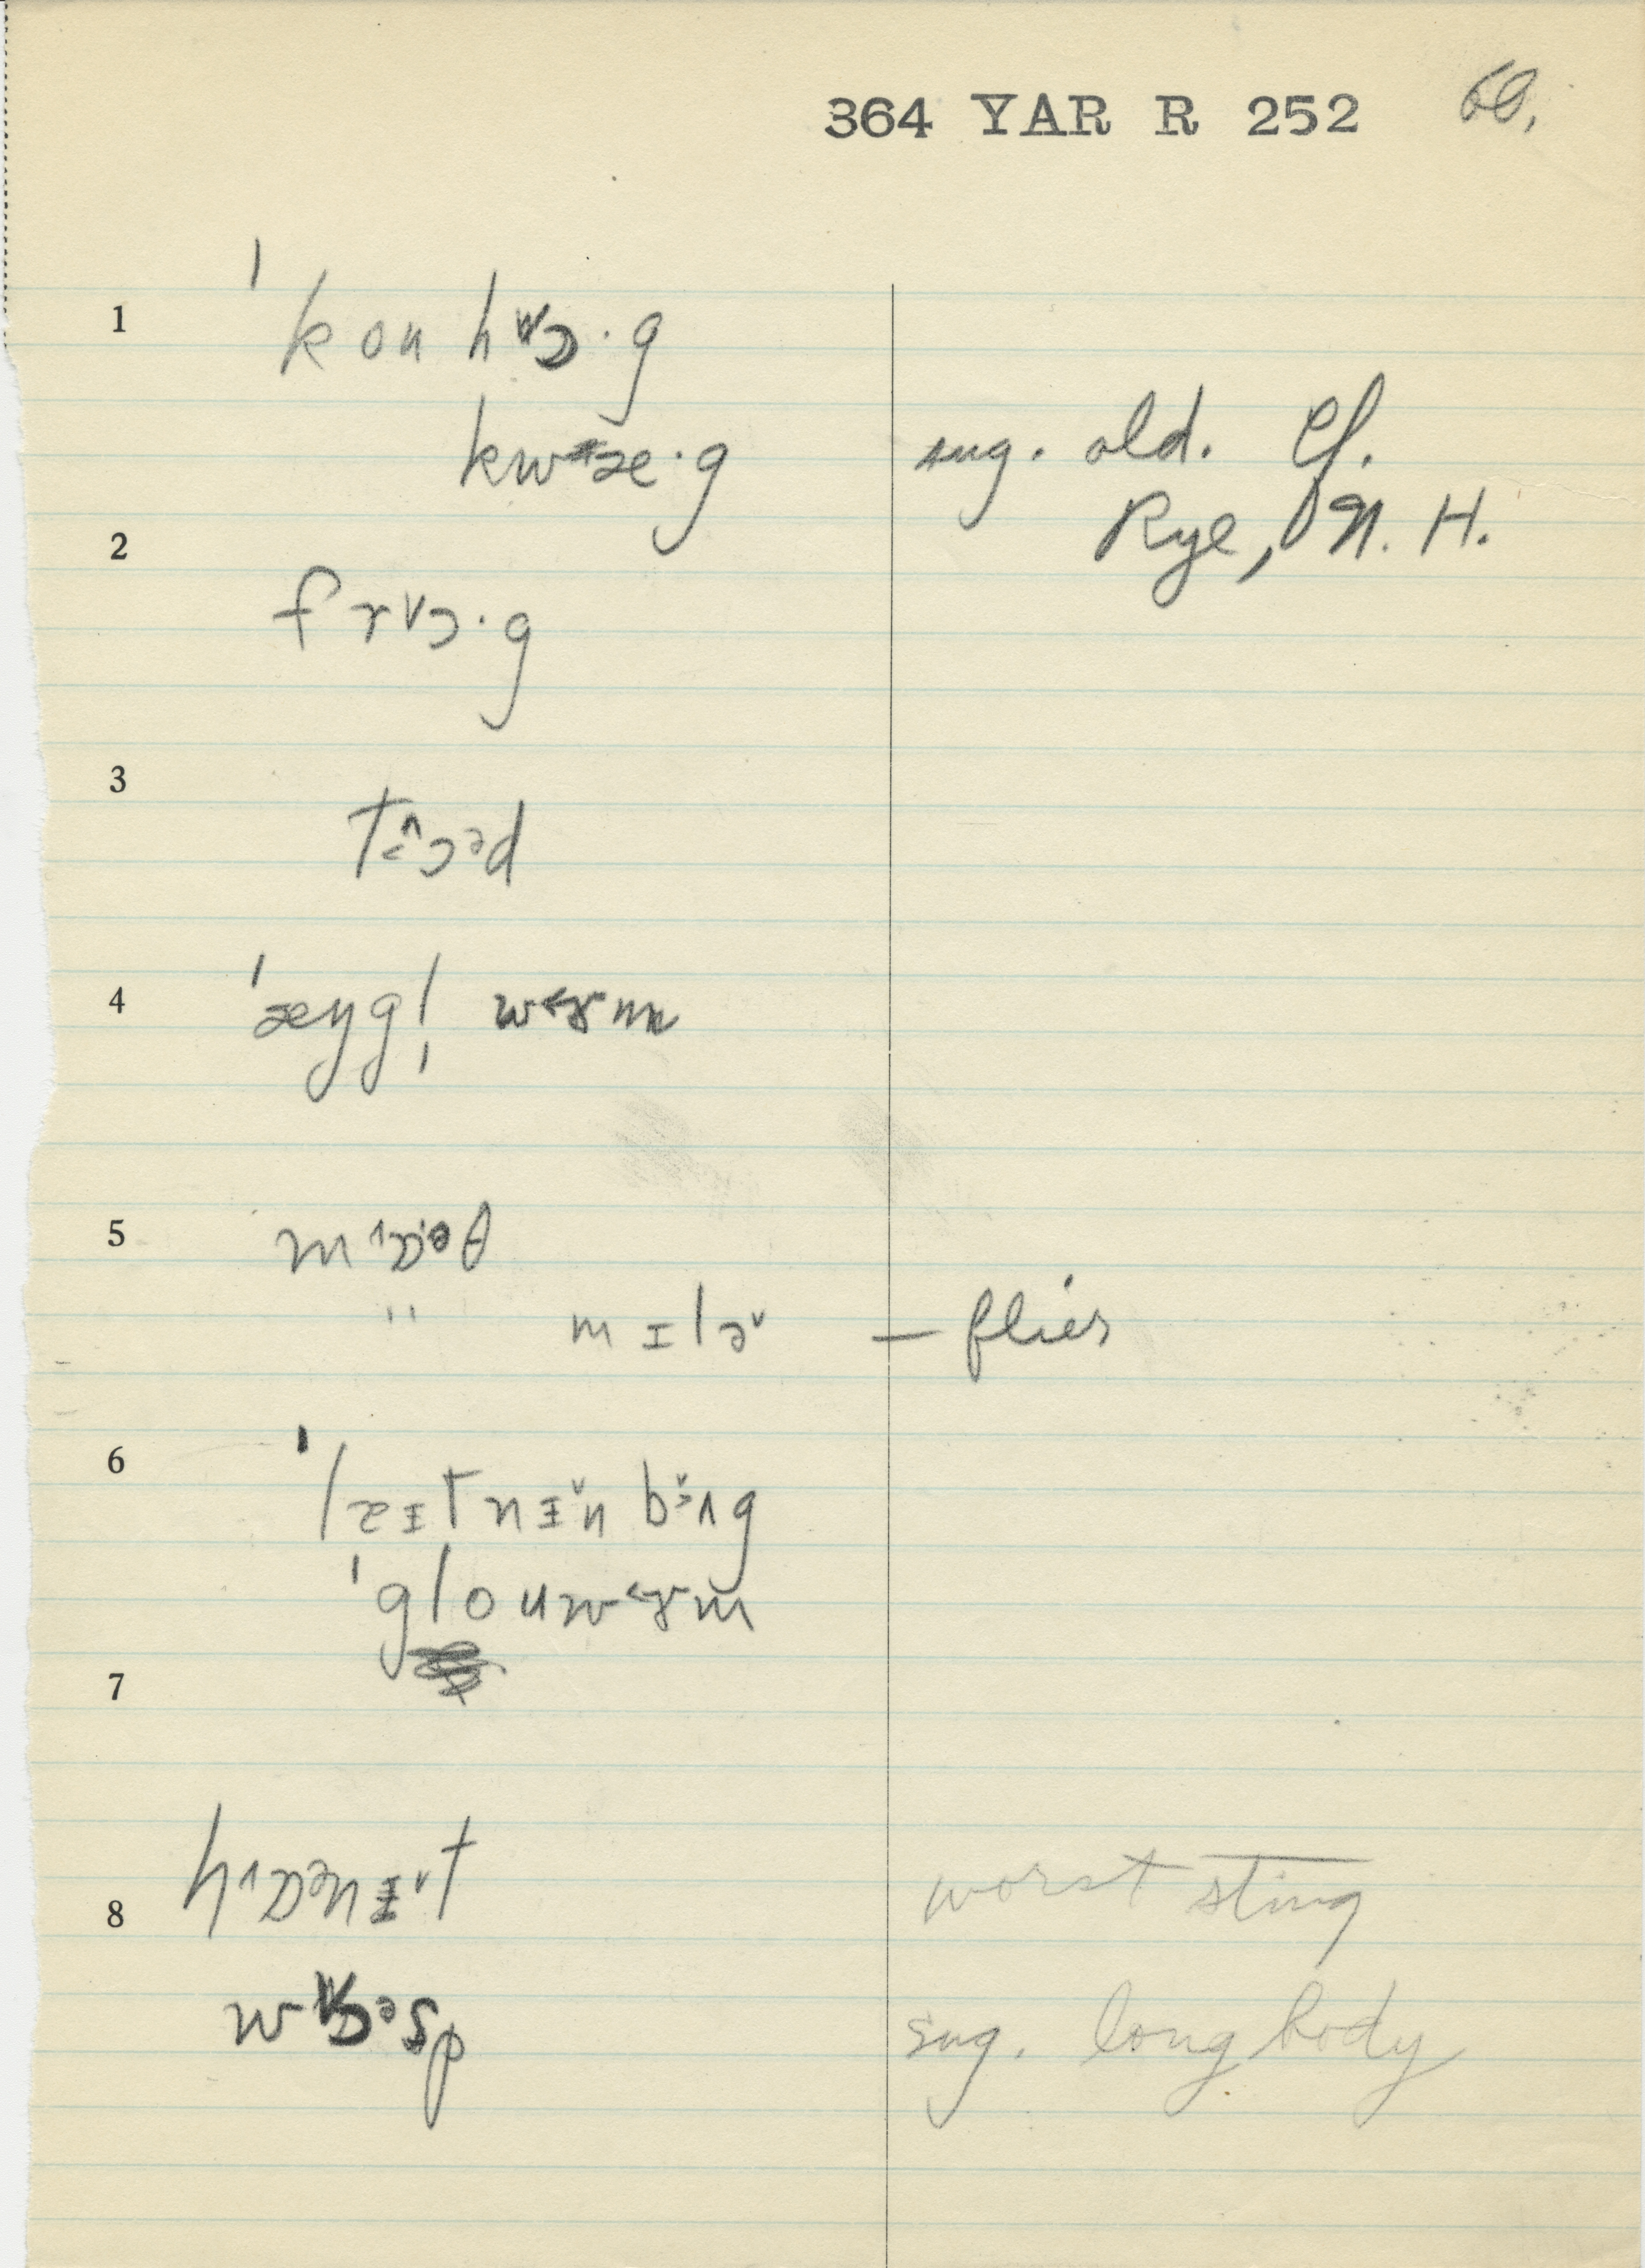 364 YAR R 252 60.
1 ˈkouhwɔ·g
kwæ·g sug. old. Cf.
Rye, N. H.
2 frɔ·g
3 tɔəd
4 ˈæŋgl̩ wɚm
5 mɒəθ
" mɪlɚ — flies
6 ˈlæɪtnɪn bʌg
ˈglouwɚm
7
hɒənɪt worst sting
8
wɔəsp sug. long body